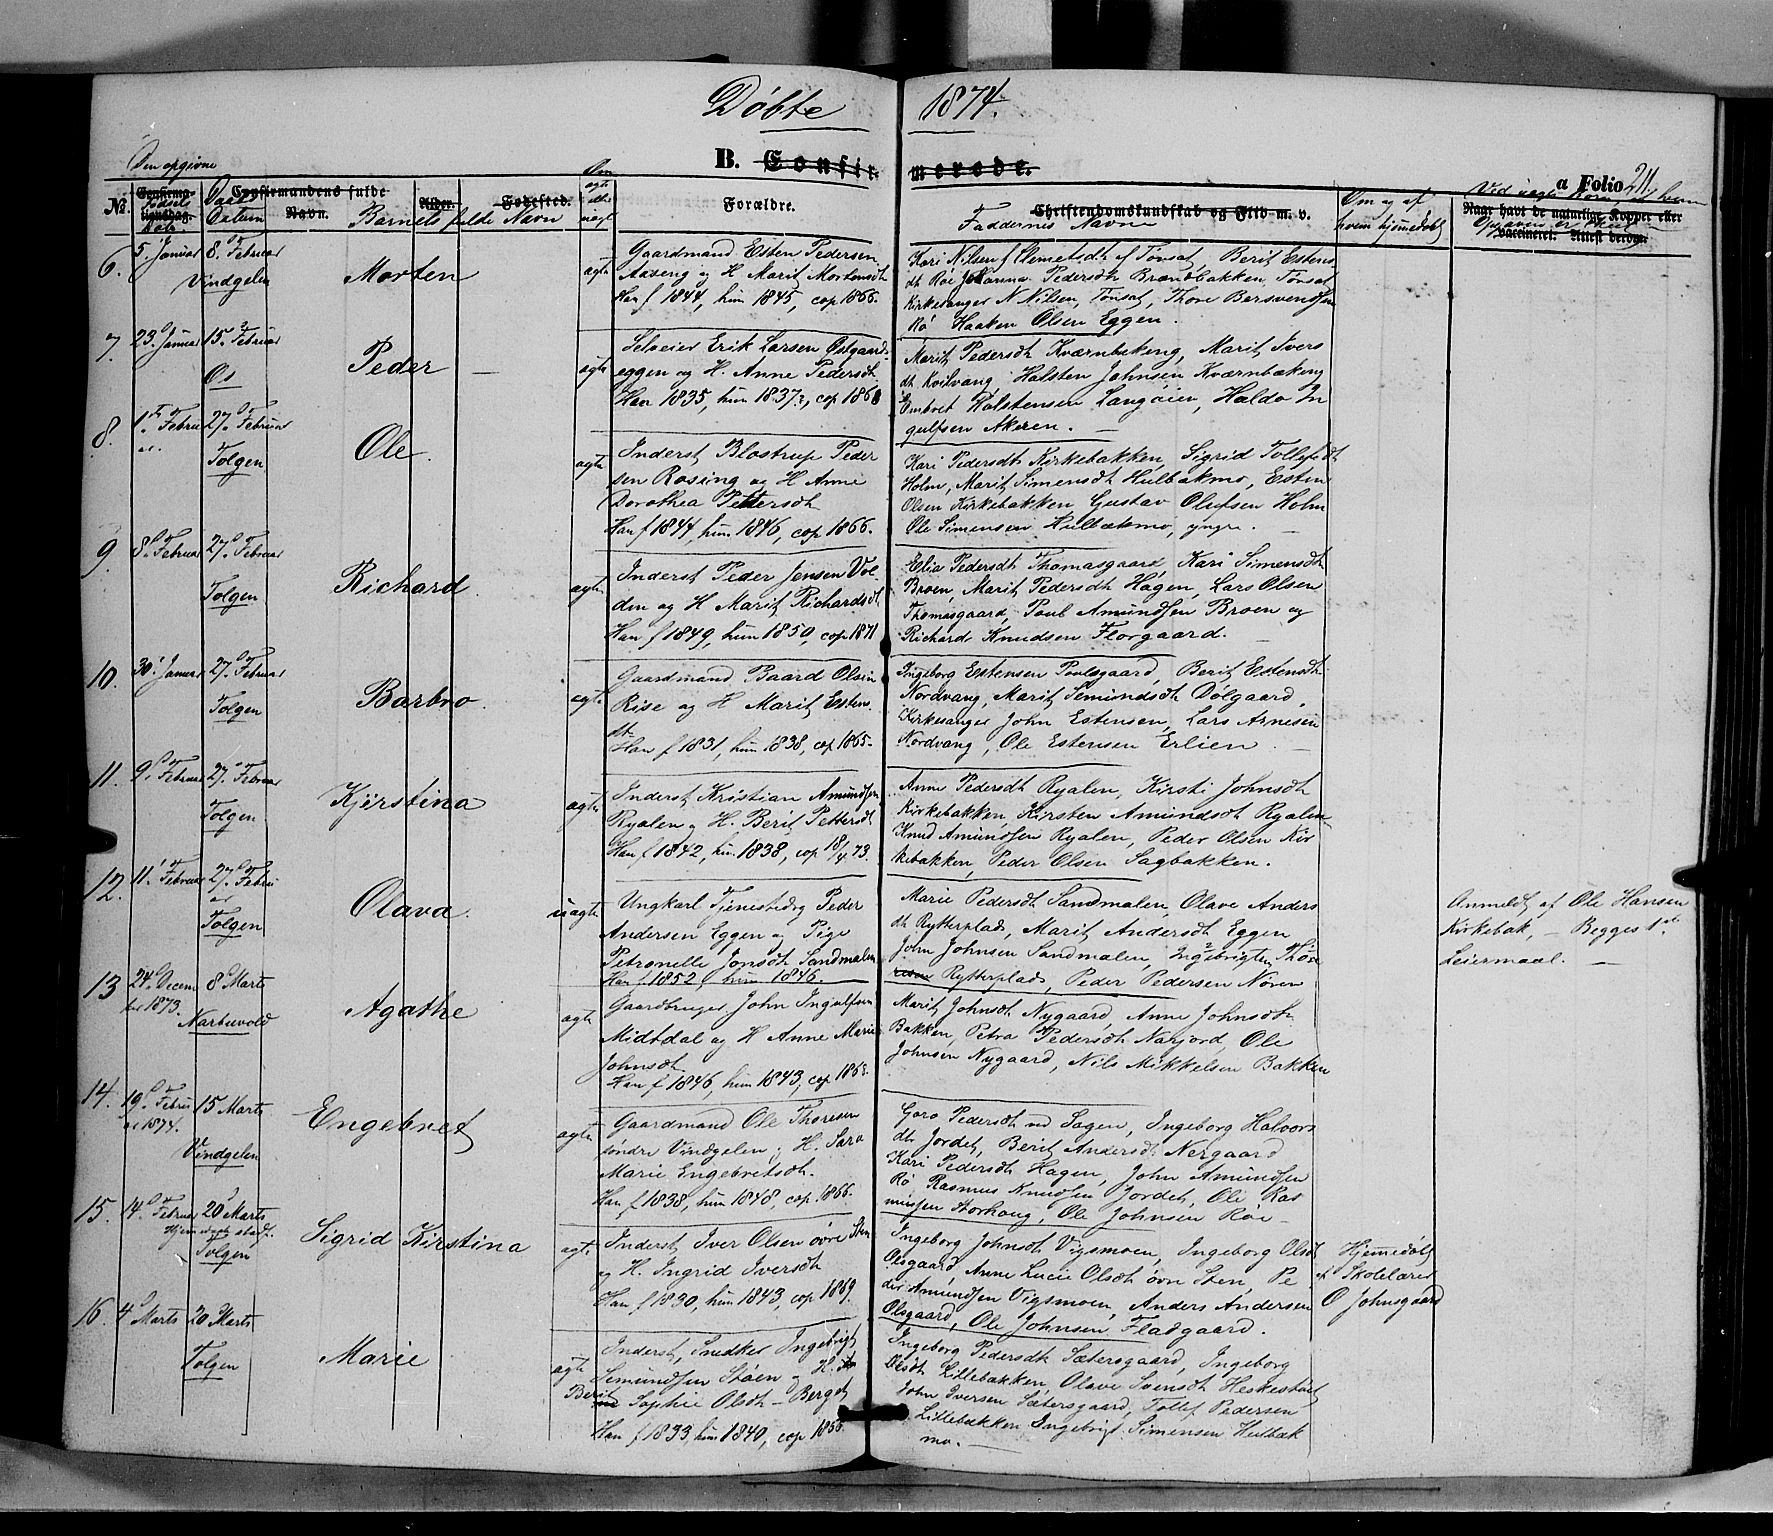 Døbte 1874.
B. Confirmerede.
a Folio 211.
Den opgivne
No. Confirmationsdag. Fødsels Dato
Daabs Datum
Confirmandens fulde Navn.
Barnets fulde Navn
Alder. Fødested.
Om ægte eller uægte
Forældre.
Christendomskundskab og Flid m. v.
Faddernes Navne
Om og af hvem hjemmedøbt
Naar havt de naturlige Kopper eller vaccineret. Attest derom.
6. 5. Januar 8. Februar
Vindgelen
Morten
ægte
Gaardmand Esten Pedersen
Aaseng og H. Marit Mortensdt
Han f 1844, hun 1845, cop 1866.
Kari Nilsen f Clemetsdt af Tønsæt, Berit Estens
dt Røe Johanna Pedersdt Brændbakken, Tønsæt
Kirkesanger N Nilsen, Tønsæt, Thore Bersvendsen
Rø Haaken Olsen Eggen.
7. 23. Januar 15. Februar
Os
Peder
ægte
Selveier Erik Larsen Østgaards-
eggen og H. Anne Pedersdt
Han 1835, hun 1837, cop 1868
Marit Pedersdt Kværnbækeng, Marit Ivers
dt Kvilvang, Halsten Johnsen Kværnbækeng
Embret Halstensen Langøien, Haldo In
gulfsen Akeren.
8. 1. Februar 27. Februar
Tolgen
Ole.
ægte
Inderst Blostrup Peder
sen Rosing og H Anne
Dorothea Pettersdt
Han f 1844, hun 1846, cop 1866.
Kari Pedersdt Kirkebakken, Sigrid Tollefsdt
Holm, Marit Simensdt Hulbækmo, Esten
Olsen Kirkebakken, Gustav Olufsen Holm
Ole Simensen Hulbækmo, yngre.
9. 8. Februar 27. Februar
Tolgen
Richard.
ægte
Inderst Peder Jensen Vol-
den og H Marit Richardsdt
Han f 1849, hun 1850, cop 1871
Elia Pedersdt Thomasgaard, Kari Simensdt
Broen, Marit Pedersdt Hagen, Lars Olsen
Thomasgaard, Poul Amundsen Broen og
Richard Knudsen Florgaard.
10. 30. Januar 27. Februar
Tolgen
Barbro.
ægte
Gaardmand Baard Olsen
Rise og H Marit Estens
dt
Han f 1831, hun 1838, cop 1865.
Ingeborg Estensen Poulsgaard, Berit Estensdt
Nordvang, Marit Semundsdt Dølgaard,
Kirkesanger John Estensen, Lars Arnesen
Nordvang, Ole Estensen Erlien.
11. 9. Februar 27. Februar
Tolgen
Kjerstina
ægte
Inderst Kristian Amundsen
Ryalen og H. Berit Pettersdt
Han f 1842, hun 1838, cop 18/4 73.
Anne Pedersdt Ryalen, Kirsti Johnsdt
Kirkebakken, Kirsten Amundsdt Ryalen
Knud Amundsen Ryalen, Peder Olsen Kir
kebakken, Peder Olsen Sagbakken.
12. 11. Februar 27. Februar
Tolgen
Olava.
uægte
Ungkarl Tjenestedrg Peder
Andersen Eggen og Pige
Petronelle Jonsdt Sandmalen
Han f 1852, hun 1846.
Marie Pedersdt Sandmalen, Olave Anders
dt Rytterplads, Marit Andersdt Eggen
John Johnsen Sandmalen, Ingebrigten Thore
Rytterplads, Peder Pedersen Noren
Anmeldt af Ole Hansen
Kirkebak, – Begges 1ste
Leiermaal.
13 24. Decem
ber 1873. 8 Marts
Narbuvold
Agathe
ægte
Gaardbruger John Ingulfsen
Midtdal og H Anne Marie
Johnsdt.
Han f 1846, hun 1843, cop 1865.
Marit Johnsdt Nygaard, Anne Johnsdt
Bakken, Petra Pedersdt Narjord, Ole
Johnsen Nygaard, Nils Mikkelsen Bakken
14. 19. Febru
ar 1874. 15 Marts
Vindgelen
Engebret
ægte
Gaardmand Ole Thoresen
søndre Vindgelen, H. Sara
Marie Engebretsdt.
Han f 1838, hun 1848, cop 1866.
Goro Pedersdt ved Sagen, Ingeborg Halvors
dt Jordet, Berit Andersdt Nergaard
Kari Pedersdt Hagen, John Amundsen
Rø Rasmus Knudsen Jordet, Ole Ras
mussen Storhaug, Ole Johnsen Røe
15. 14. Februar 20 Marts
Tolgen
Sigrid Kirstina
ægte
Inderst Iver Olsen øvre Sten
og H. Ingrid Iversdt
Han f 1830, hun 1843, cop 1869.
Ingeborg Johnsdt Vigsmoen, Ingeborg Olsdt
Olsgaard, Anne Lucie Olsdt øvre Sten, Pe
der Amundsen Vigsmoen, Anders Andersen
Olsgaard, Ole Johnsen Fladgaard.
Hjemmedøbt
af Skolelærer
O Johnsgaard
16. 4 Marts 20 Marts
Tolgen
Marie
ægte
Inderst, Snedker Ingebrigt
Semundsen Støen og H.
Berit Sophie Olsdt Berget
Han f 1833, hun 1840, cop 1856.
Ingeborg Pedersdt Sætersgaard, Ingeborg
Olsdt Lillebakken, Olave Svensdt Heskestøel
John Iversen Sætersgaard, Tollef Pedersen
Lillebækken Ingebrigt Simensen Hulbæk
mo.